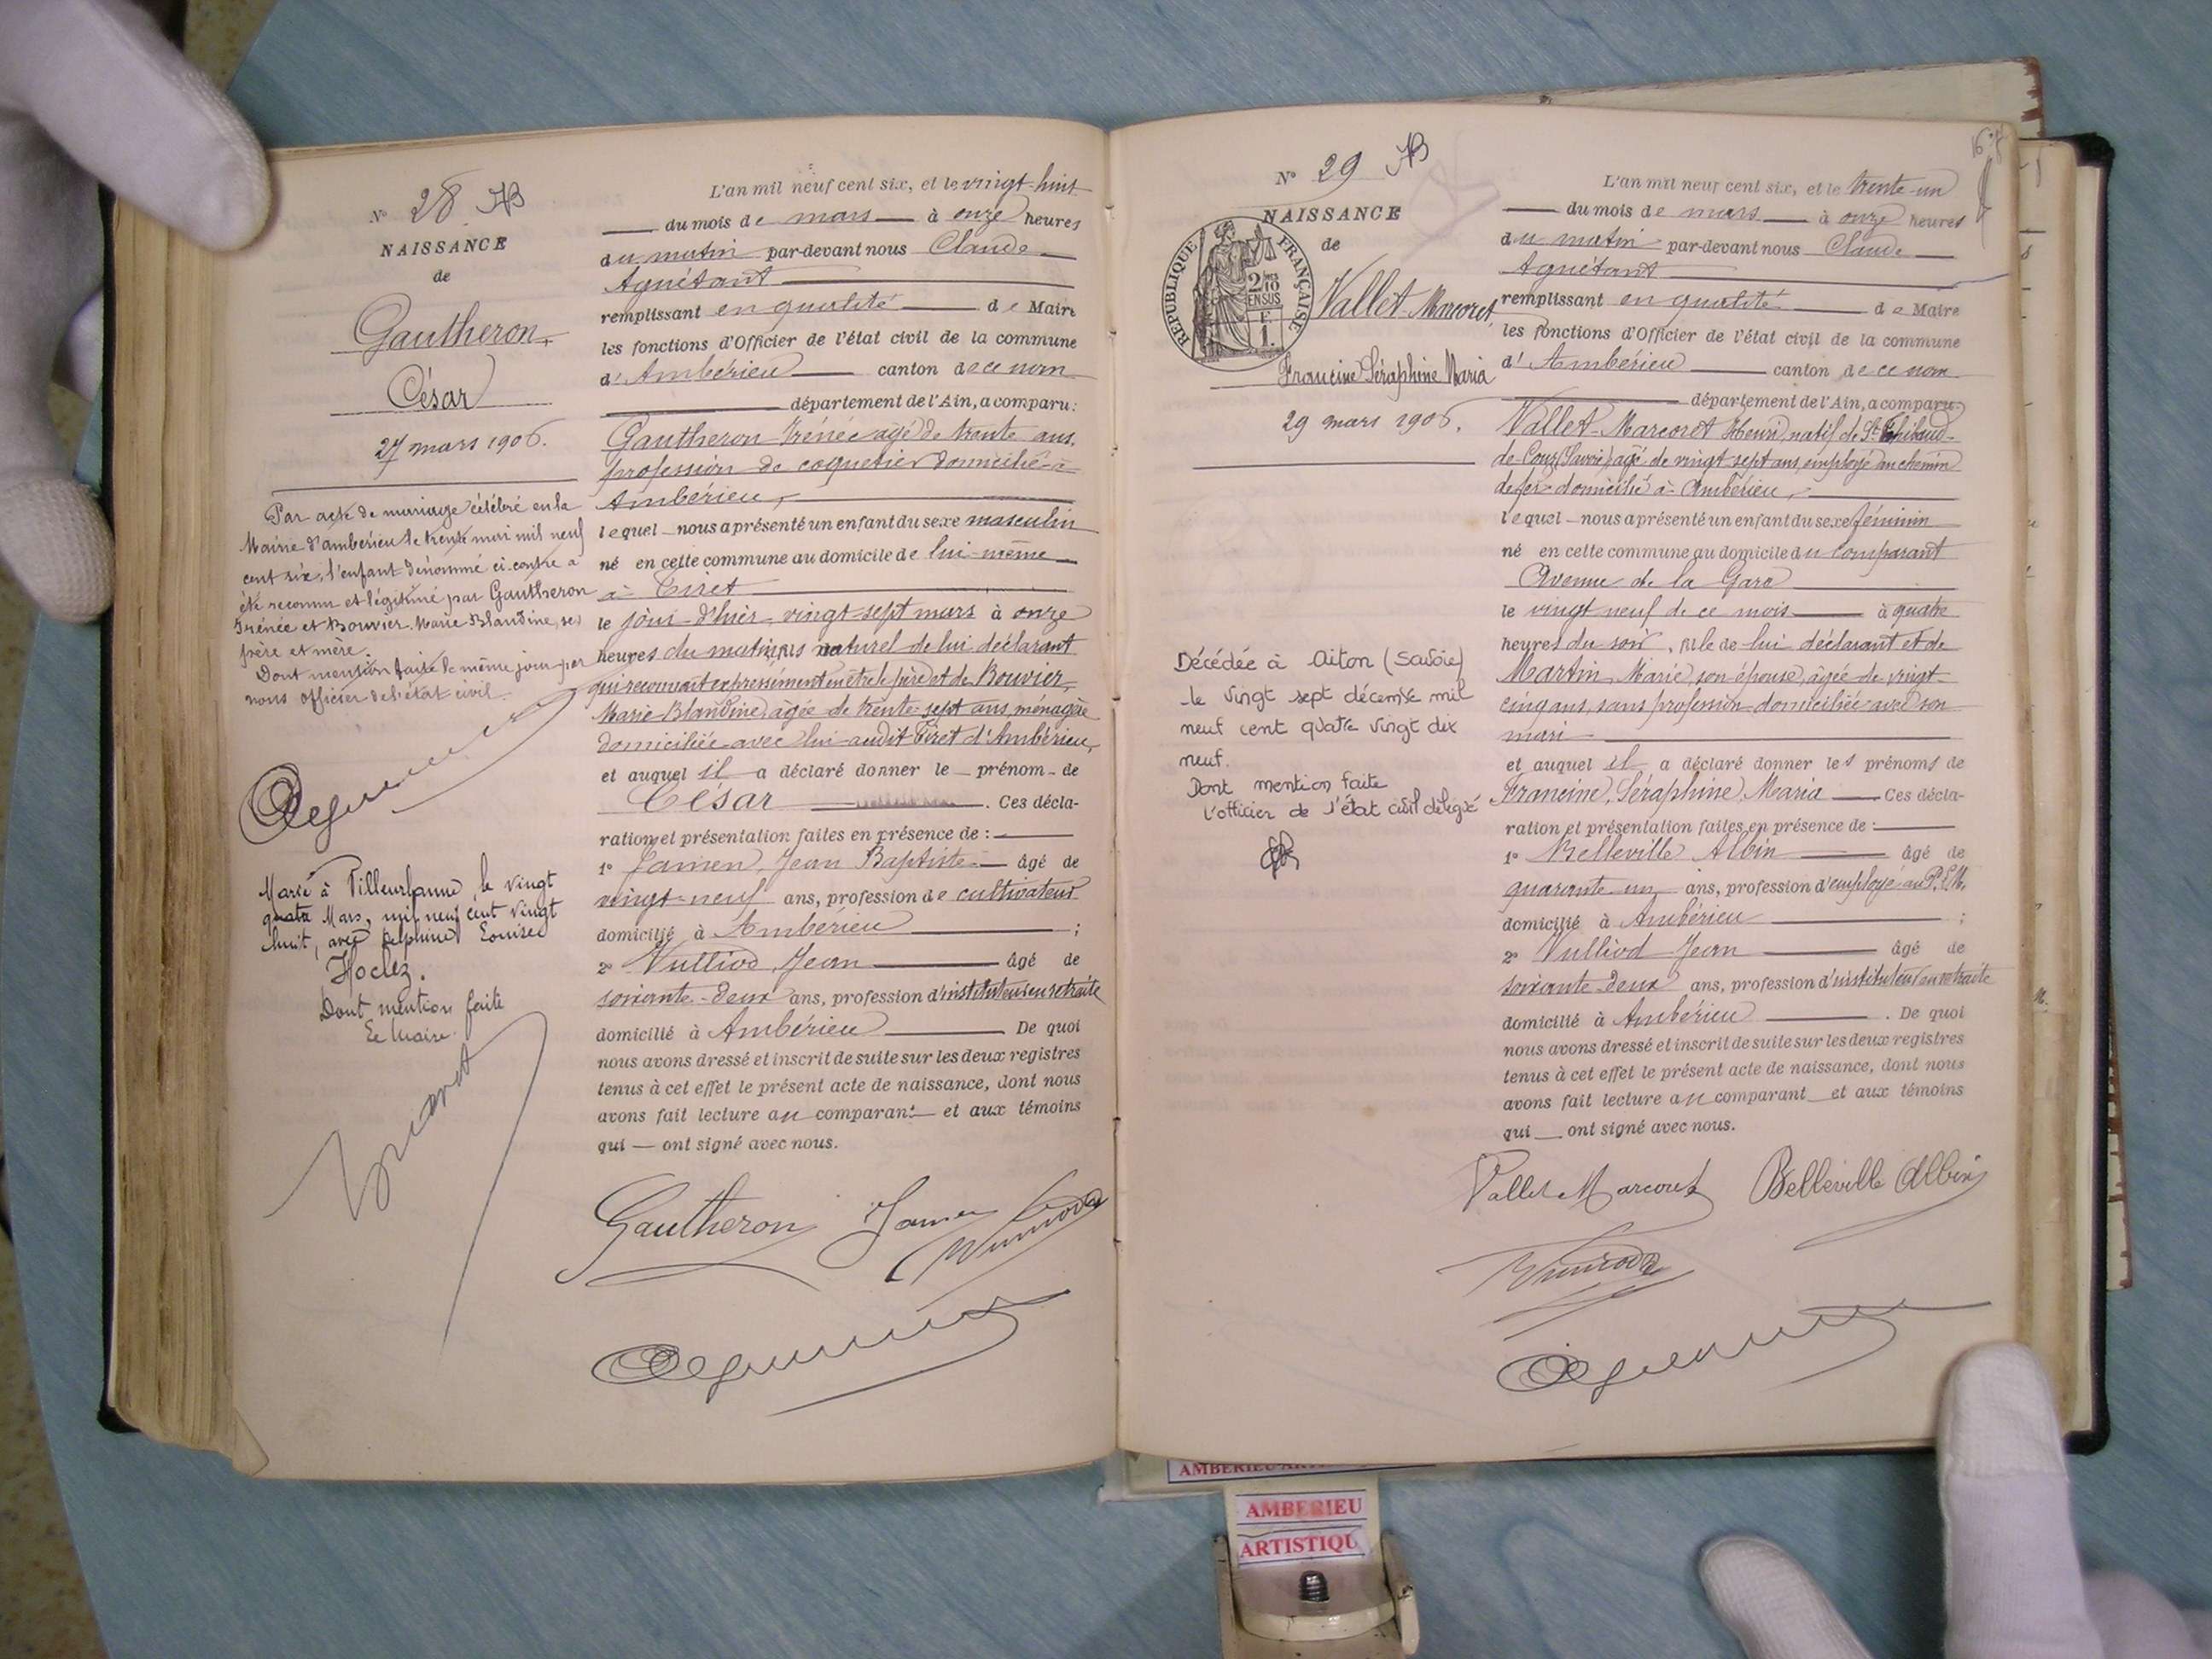 N° 28 AB
NAISSANCE
de
Gautheron
César
27 mars 1906.
Par acte de mariage célébré en la
Mairie d'ambérieu le trente mai mil neuf
cent six, l'enfant dénommé ci-contre a
été reconnu et légitimé par Gautheron
Irénée et Bouvier Marie Blandine, ses
père et mère.
Dont mention faite le même jour par
nous officier de l'état civil.
Marié à Villeurbanne, le vingt
quatre Mars, mil neuf cent vingt
huit, avec Delphine Louise
Hoclez.
Dont mention faite
Le Maire
L'an mil neuf cent six, et le vingt-huit
du mois de mars à onze heures
du matin par-devant nous Claude
Aguétant
remplissant en qualité de Maire
les fonctions d'Officier de l'état civil de la commune
d'Ambérieu canton de ce nom
département de l'Ain, a comparu:
Gautheron Irénée âgé de trente ans,
profession de coquetier domicilié à
Ambérieu,
lequel nous a présenté un enfant du sexe masculin
né en cette commune au domicile de lui-même
à Tiret
le jour d'hier vingt-sept mars à onze
heures du matin, fils naturel de lui déclarant
qui reconnait expressément en être le père et de Bouvier,
Marie Blandine, âgée de trente-sept ans, ménagère
domiciliée avec lui audit Tiret d'Ambérieu,
et auquel il a déclaré donner le prénom de
César . Ces décla-
ration et présentation faites en présence de :
1° Jamen, Jean Baptiste âgé de
vingt-neuf ans, profession de cultivateur
domicilié à Ambérieu ;
2° Vulliod, Jean âgé de
soixante-deux ans, profession d'instituteur en retraite
domicilié à Ambérieu De quoi
nous avons dressé et inscrit de suite sur les deux registres
tenus à cet effet le présent acte de naissance, dont nous
avons fait lecture au comparant et aux témoins
qui ont signé avec nous.
Gautheron Jamen
N° 29 AB
NAISSANCE
de
REPUBLIQUE FRANÇAISE
2/10 EN SUS
F
1.
Vallet-Marcoret,
Francine Séraphine Maria
29 mars 1906.
Décédée à Aiton (Savoie)
le vingt sept décembre mil
neuf cent quatre vingt dix
neuf.
Dont mention faite
l'officier de l'état civil délégué
L'an mil neuf cent six, et le trente-un
du mois de mars à onze heures
du matin par-devant nous Claude
Aguétant
remplissant en qualité de Maire
les fonctions d'Officier de l'état civil de la commune
d'Ambérieu canton de ce nom
département de l'Ain, a comparu:
Vallet-Marcoret Henri, natif de St Thibaud-
de-Couz (Savoie), âgé de vingt sept ans, employé au chemin
de fer domicilié à Ambérieu,
lequel nous a présenté un enfant du sexe féminin
né en cette commune au domicile du comparant
Avenue de la Gare
le vingt neuf de ce mois à quatre
heures du soir, fille de lui déclarant et de
Martin, Marie, son épouse, âgée de vingt
cinq ans, sans profession domiciliée avec son
mari
et auquel il a déclaré donner les prénoms de
Francine, Séraphine, Maria Ces décla-
ration et présentation faites en présence de :
1° Belleville Albin âgé de
quarante-un ans, profession d'employé au P.L.M.
domicilié à Ambérieu ;
2° Vulliod Jean âgé de
soixante-deux ans, profession d'instituteur en retraite
domicilié à Ambérieu . De quoi
nous avons dressé et inscrit de suite sur les deux registres
tenus à cet effet le présent acte de naissance, dont nous
avons fait lecture au comparant et aux témoins
qui ont signé avec nous.
Vallet Marcoret Belleville Albin
AMBERIEU
ARTISTIQU